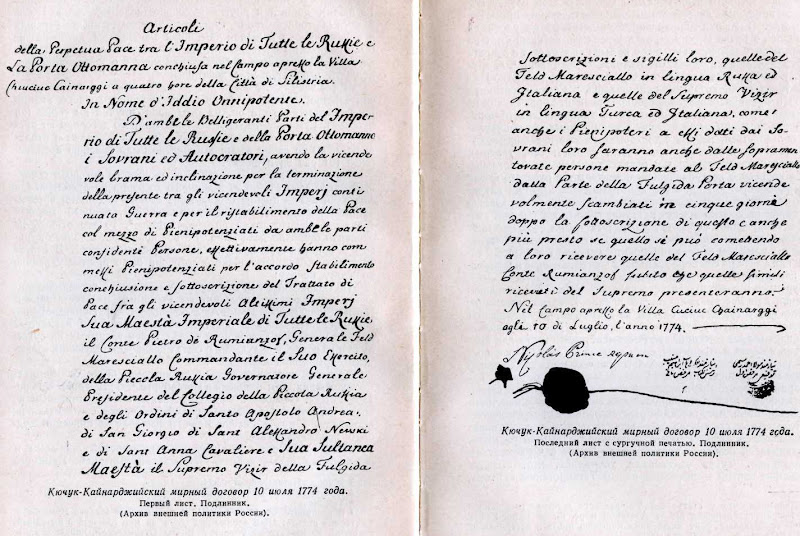 Articoli
della Perpetua Pace tra l'Imperio di Tutte le Russie e
La Porta Ottomanna conchiusa nel Campo apresso la Villa
Chuciuc Cainarggi a quatro hore della Città di Silistria.
In Nome d'Iddio Onnipotente.
D'ambe le Belligeranti Parti del Imper
rio di Tutte le Russie e della Porta Ottomanna
i Sovrani ed Autocratori, avendo la vicende
vole brama ed inclinazione per la terminazione
della presente tra gli vicendevoli Imperj conti
nuata Guerra e per il ristabilimento della Pace
col mezzo di Pienipotenziati da ambe le parti
considenti Persone, effettivamente hanno com
messi Pienipotenziati per l'accordo stabilimento
conchiusione e sottoscrizione del Trattato di
Pace fra gli vicendevoli Altissimi Imperj
Sua Maestà Imperiale di Tutte le Russie
il Conte Pietro de Rumianzof, Generale Feld
Maresciallo Commandante il Suo Essercito,
della Piccola Russia Governatore Generale
Presidente del Collegio della Piccola Russia
e degli Ordini di Santo Apostolo Andrea,
di San Giorgio di Sant Alessandro Newski
e di Sant Anna Cavaliere e Sua Sultanea
Maestà il Supremo Vizir della Fulgida
Кючук-Кайнарджийский мирный договор 10 июля 1774 года.
Первый лист. Подлинник.
(Архив внешней политики России).
sottoscrizioni e sigilli loro, quelle del
Feld Maresciallo in lingua Russa ed
Italiana e quelle del Supremo Vizir
in lingua Turca ed Italiana, come
anche i Pienipoteri a essi dotti dai So-
vrani loro saranno anche dalle sopramen
tovate persone mandate al Feld Maresciallo
dalla Parte della Fulgida Porta vicende
volmente scambiati in cinque giorni
doppo la sottoscrizione di questo e anche
più presto se quello si può comettendo
a loro ricevere quelle del Feld Maresciallo
Conte Rumianzof subito che quelle simili
ricevuti del Supremo presenteranno.
Nel Campo apresso la Villa Cuciuc Chainarggi
agli 10 di Luglio, l'anno 1774.
Nicolas Prince
Кючук-Кайнарджийский мирный договор 10 июля 1774 года.
Последний лист с сургучной печатью. Подлинник.
(Архив внешней политики России).